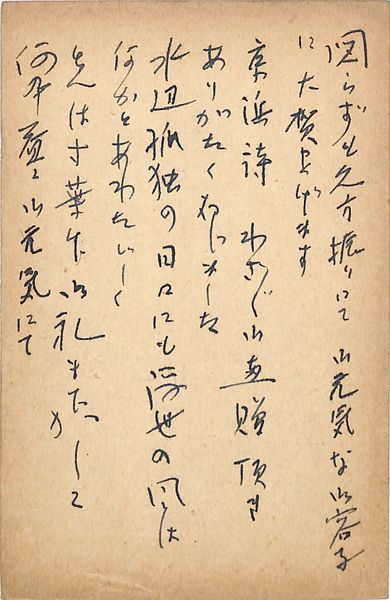 図らずも久方振りにて 御元気な御容子
に大賀ます
京浜詩 わざ〱御恵贈頂き
ありがたく存じました
水辺孤独の日日にも浮世の風は
何かとあわたゞしく
先は寸葉乍御礼まで
何卒益々御元気にて